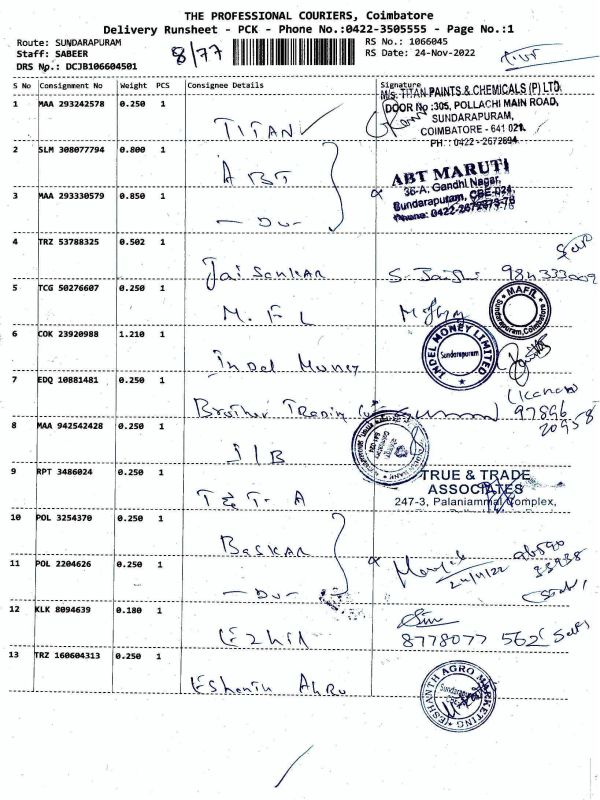 THE PROFESSIONAL COURIERS, Coimbatore
Delivery Runsheet - PCK - Phone No.:0422-3505555 - Page No.:1
Route: SUNDARAPURAM
RS No.: 1066045
Staff: SABEER
8/77
RS Date: 24-Nov-2022
DRS No.: DCJB106604501
S No Consignment No Weight PCS Consignee Details Signature
1 MAA 293242578 0.250 1 TITAN
M/s. TITAN PAINTS & CHEMICALS (P) LTD.
DOOR No :305, POLLACHI MAIN ROAD,
SUNDARAPURAM,
COIMBATORE - 641 021.
PH. : 0422 - 2672694
2 SLM 308077794 0.800 1 ABT
ABT MARUTI
36-A, Gandhi Nagar,
Sundarapuram, CBE-024
Phone: 0422-2672673-76
3 MAA 293330579 0.850 1 - Du -
4 TRZ 53788325 0.502 1 Jai Sankar
5 TCG 50276607 0.250 1 M. F L
MAFIL
Sundarapuram, Coimbatore
6 COK 23920988 1.210 1 Indel Money
INDEL MONEY LIMITED
Sundarapuram
7 EDQ 10881481 0.250 1 Brother
97896
20958
8 MAA 942542428 0.250 1 I/B
9 RPT 3486024 0.250 1 T & T. A
TRUE & TRADE
ASSOCIATES
247-3, Palaniammal Complex,
10 POL 3254370 0.250 1 Baskar
11 POL 2204626 0.250 1 - Du -
24/11/22
12 KLK 8094639 0.180 1 Ezhil
8778077 562
13 TRZ 160604313 0.250 1 Eshanth Agro
ESHANTH AGRO MARKETING
Sundarapuram